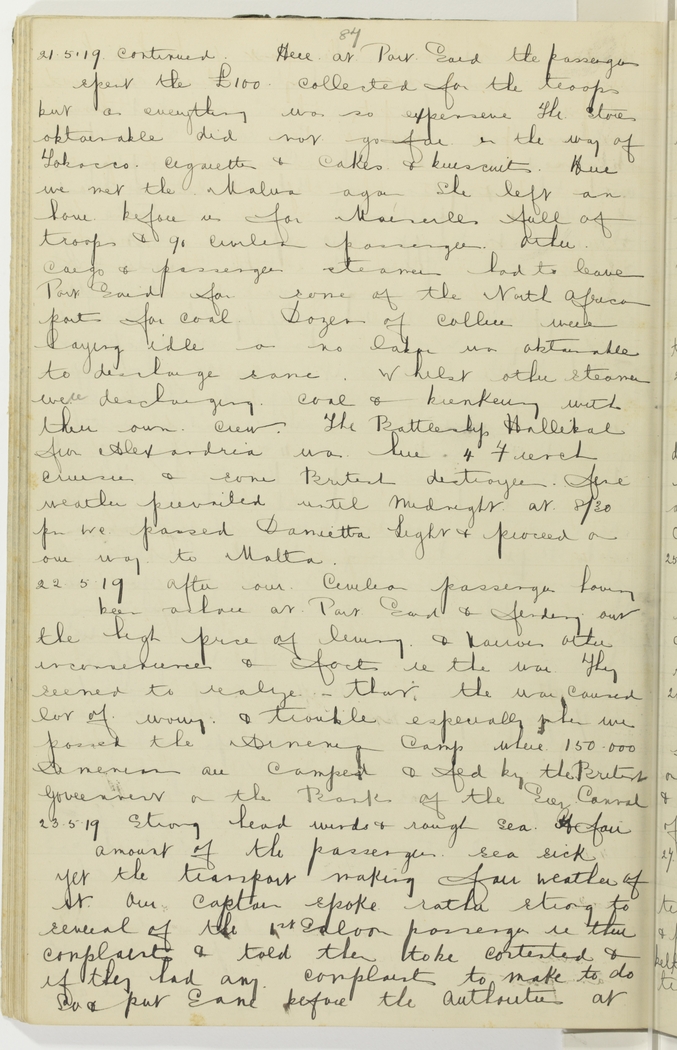 84
21.5.19 continued. Here at Port Said the passengers
spent the £100 collected for the troops
but as everything was so expensive The stores
obtainable did not go far in the way of
Tobacco. Cigarettes & Cakes & buiscuits. Here
we met the Malwa again She left an
hour before us for Marseilles full of
troops & 90 civilian passengers. Other
Cargo & passenger steamers had to leave
Port Said for some of the North African
ports for coal. Dozens of colliers were
laying idle as no labor was obtainable
to discharge same. Whilst other steamers
were discharging coal & bunkering with
their own crew. The Battleship
from Alexandria was here. 4 French
cruisers & some British destroyers. Fine
weather prevailed until Midnight at 8/30
pm we passed Damietta light & proceed on
our way to Malta.
22.5.19 After our Civilian passengers having
been ashore at Port Said & finding out
the high price of living. & various other
inconveniences & facts re the war They
seemed to realize - that, the war caused
lot of worry. & trouble especially when we
passed the Armenian Camp where 150.000
Armenians are camped & fed by the British
Government on the Banks of the Suez Cannal
23.5.19 Strong head winds & rough sea. A fair
amount of the passengers sea sick
yet the transport making fair weather of
it. Our Captain spoke rather strong to
several of the 1st Saloon passengers re their
complaints & told them to be contented &
if they had any complaints to make to do
So & put Same before the Authorities at